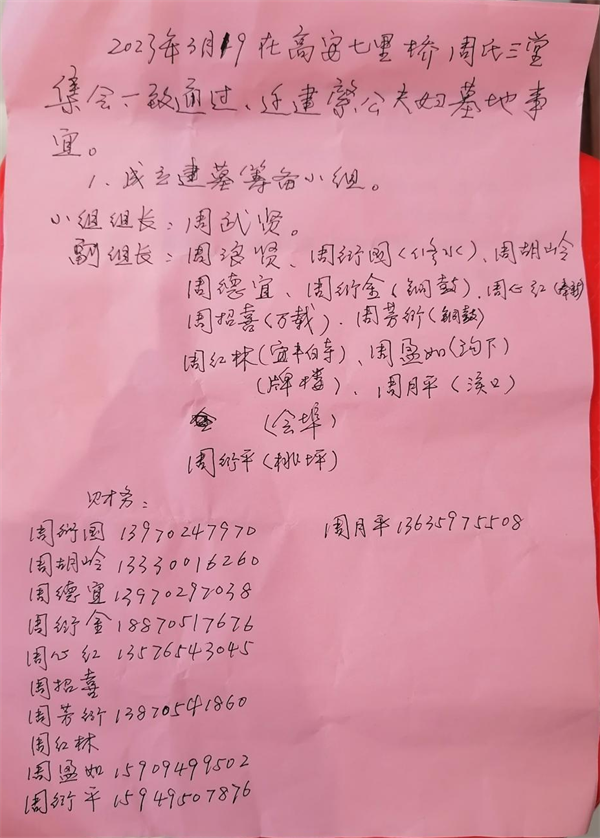 2023年3月19在高安七里桥周氏三堂
集会一致通过、迁建 公夫妇墓地事
宜。
1、成立建墓筹备小组。
小组组长：周武贤。
副组长：周浪贤、周衍国(修水)、周胡岭
周德宜、周衍金(铜鼓)、周心红(奉新)
周招喜(万载)、周芳衍(铜鼓)
周红林(宜丰白寺)、周盈如(沟下)
(牌楼)、周月平(溪口)
(会埠)
周衍平(桃坪)
财务：
周衍国 13970247970 周月平13635975508
周胡岭 13330016260
周德宜13970297038
周衍金 18870517676
周心红 13576543045
周招喜
周芳衍 13870541860
周红林
周盈如 15909499502
周衍平 15949507876